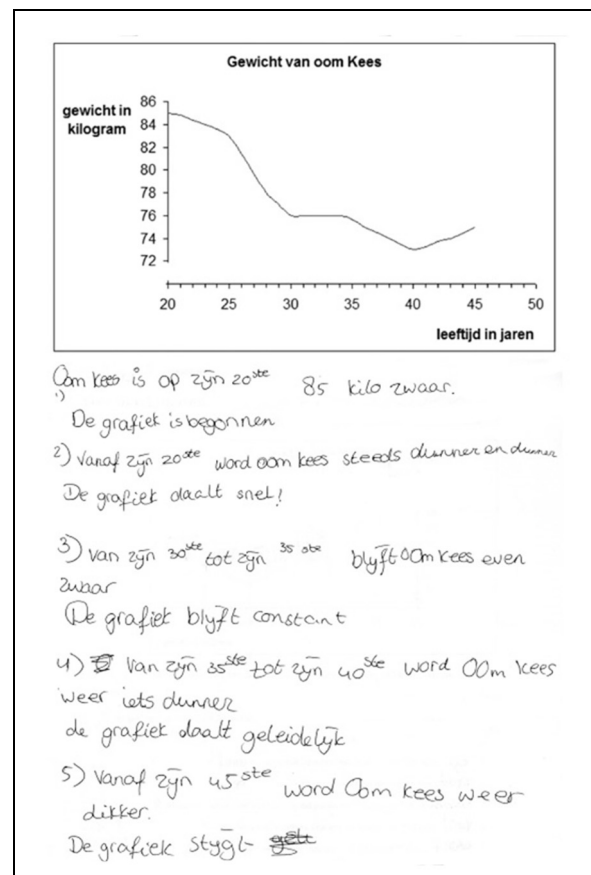 Gewicht van oom Kees
gewicht in
kilogram
86
84
82
80
78
76
74
72
20 25 30 35 40 45 50
leeftijd in jaren
Oom kees is op zijn 20ste 85 kilo zwaar.
1)
De grafiek is begonnen
2) Vanaf zijn 20ste word oom kees steeds dunner en dunner
De grafiek daalt snel!
3) Van zijn 30ste tot zijn 35ste blijft Oom kees even
zwaar
De grafiek blijft constant
4) Van zijn 35ste tot zijn 40ste word Oom kees
weer iets dunner
de grafiek daalt geleidelijk
5) Vanaf zijn 45ste word Oom kees weer
dikker.
De grafiek stijgt